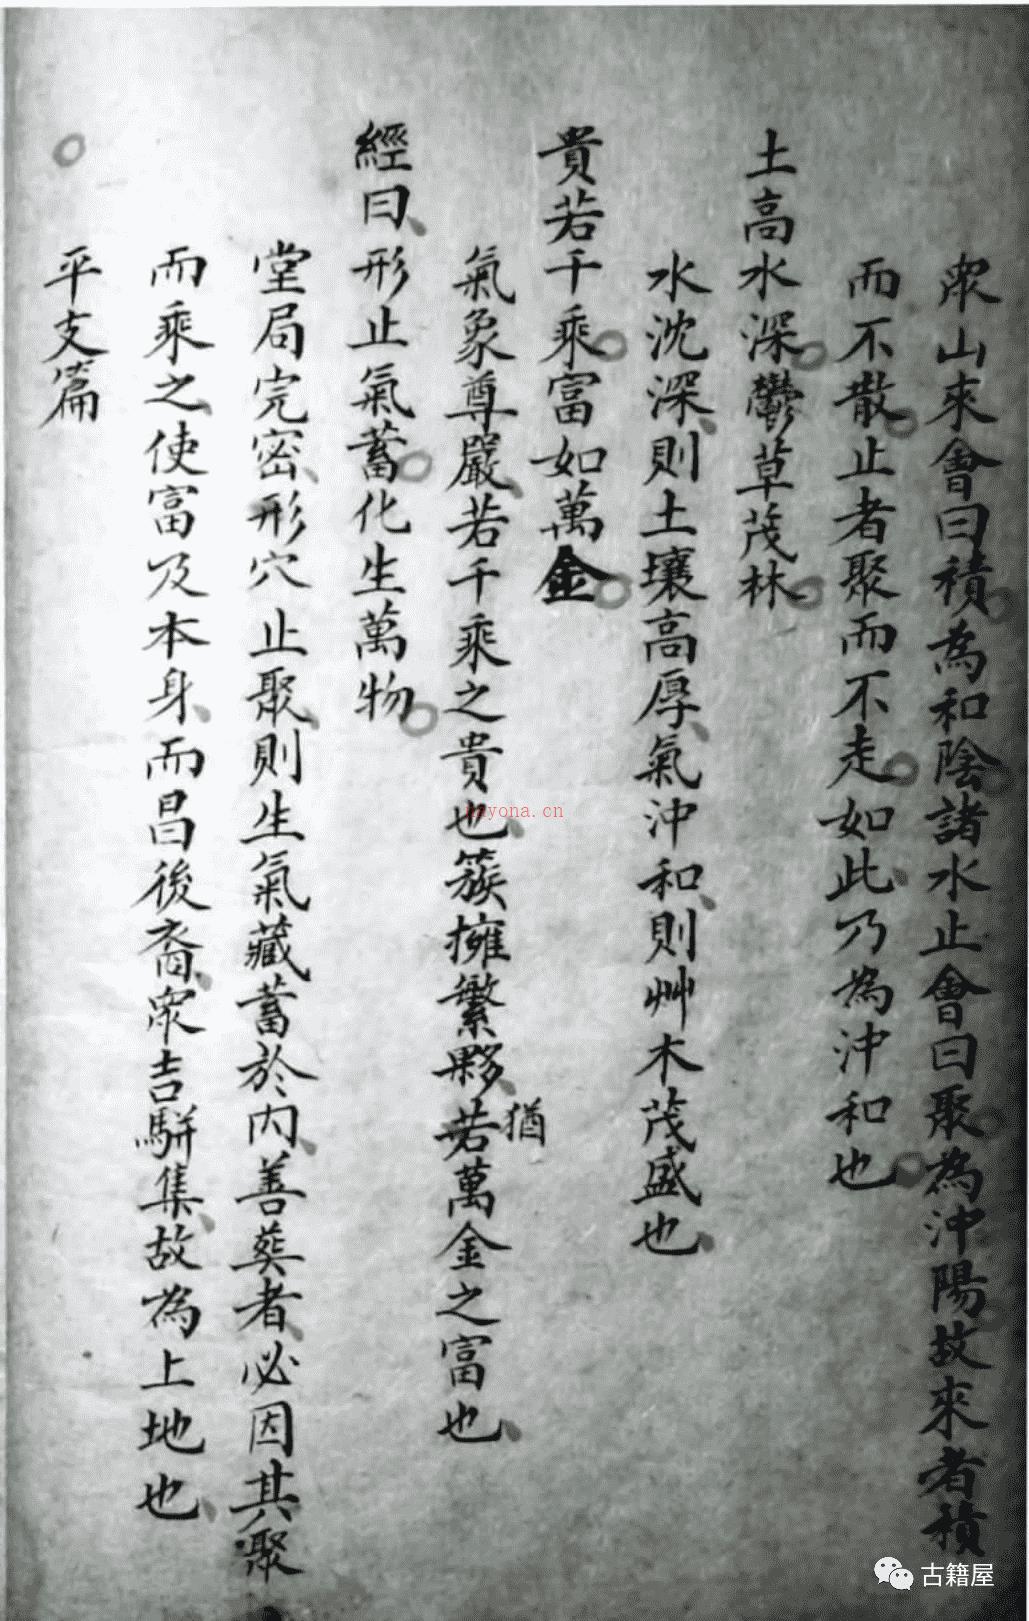 眾山來會曰積為和陰諸水止會曰聚為沖陽故來者積
而不散止者聚而不走如此乃為沖和也
土高水深鬱草茂林
水沈深則土壤高厚氣沖和則艸木茂盛也
貴若千乘富如萬金
氣象尊嚴若千乘之貴也簇擁繁夥若萬金之富也
猶
經曰形止氣蓄化生萬物
堂局完密形穴止聚則生氣藏蓄於內善葬者必因其聚
而乘之使富及本身而昌後裔眾吉駢集故為上地也
平支篇
nayona.cn
古籍屋